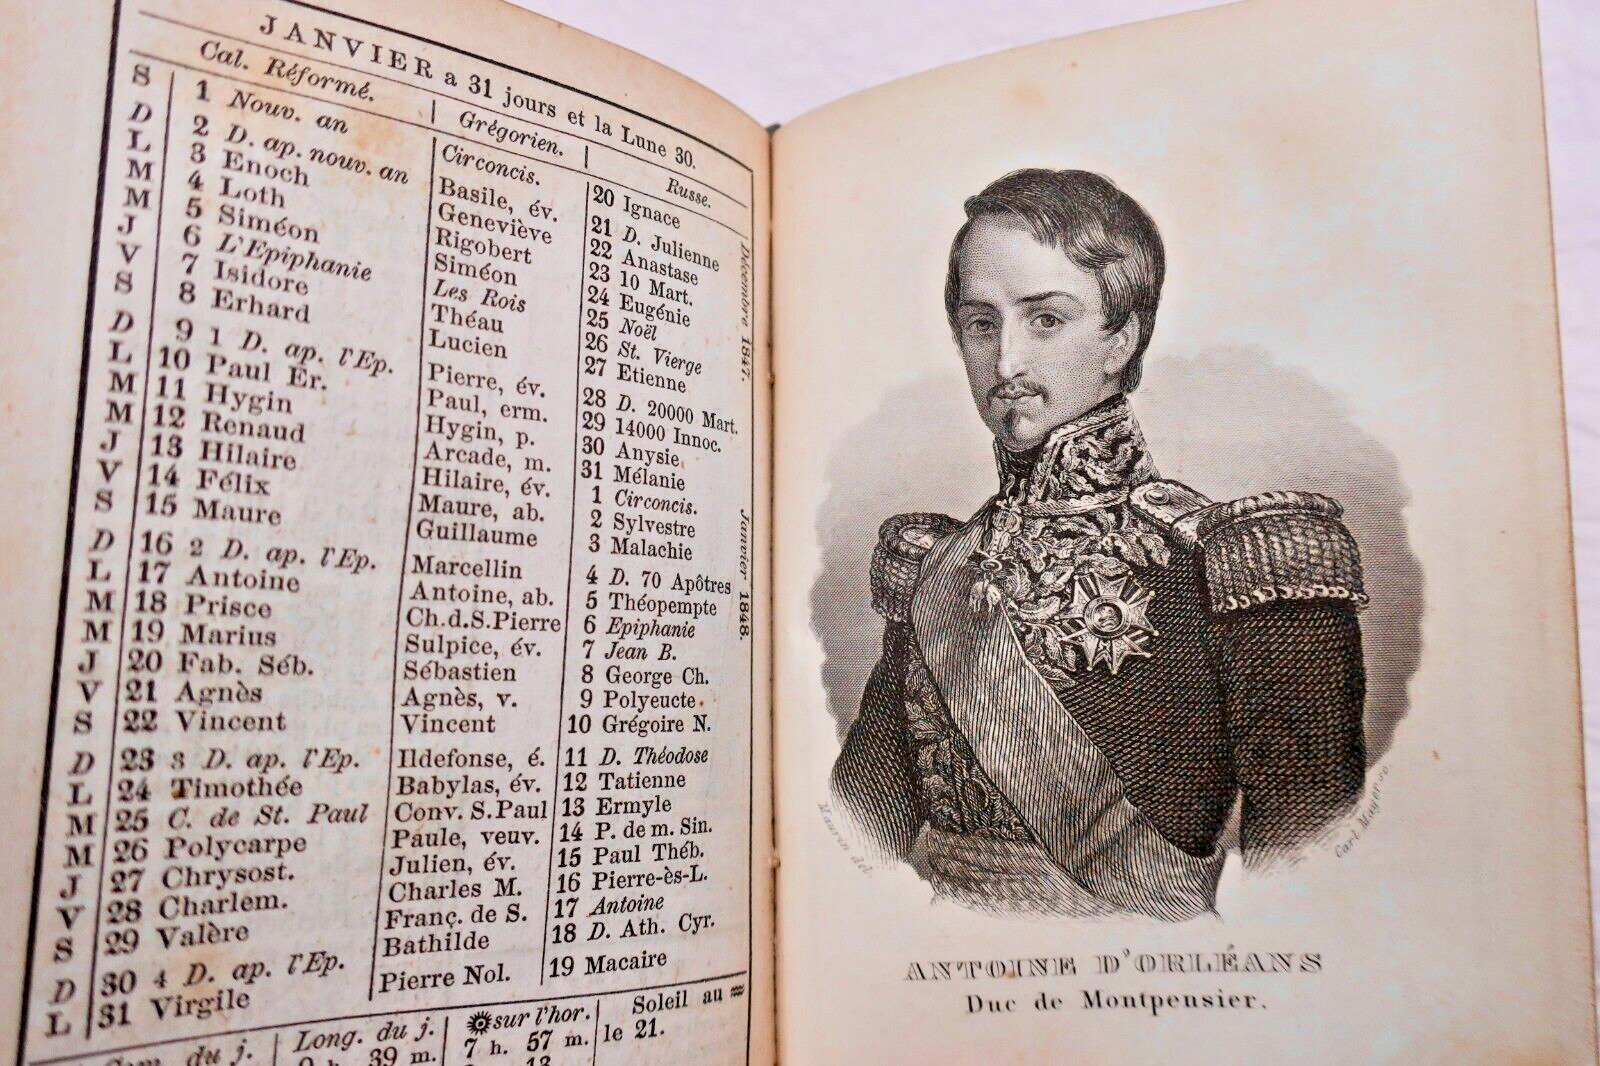 JANVIER a 31 jours et la Lune 30.
Cal. Réformé. | Grégorien. | Russe.
S 1 Nouv. an Circoncis. 20 Ignace
D 2 D. ap. nouv. an Basile, év. 21 D. Julienne
L 3 Enoch Geneviève 22 Anastase
M 4 Loth Rigobert 23 10 Mart.
M 5 Siméon Siméon 24 Eugénie
J 6 L'Epiphanie Les Rois 25 Noël
V 7 Isidore Théau 26 St. Vierge
S 8 Erhard Lucien 27 Etienne
D 9 1 D. ap. l'Ep. Pierre, év. 28 D. 20000 Mart.
L 10 Paul Er. Paul, erm. 29 14000 Innoc.
M 11 Hygin Hygin, p. 30 Anysie
M 12 Renaud Arcade, m. 31 Mélanie
J 13 Hilaire Hilaire, év. 1 Circoncis.
V 14 Félix Maure, ab. 2 Sylvestre
S 15 Maure Guillaume 3 Malachie
D 16 2 D. ap. l'Ep. Marcellin 4 D. 70 Apôtres
L 17 Antoine Antoine, ab. 5 Théopempte
M 18 Prisce Ch.d.S.Pierre 6 Epiphanie
M 19 Marius Sulpice, év. 7 Jean B.
J 20 Fab. Séb. Sébastien 8 George Ch.
V 21 Agnès Agnès, v. 9 Polyeucte.
S 22 Vincent Vincent 10 Grégoire N.
D 23 3 D. ap. l'Ep. Ildefonse, é. 11 D. Théodose
L 24 Timothée Babylas, év. 12 Tatienne
M 25 C. de St. Paul Conv. S.Paul 13 Ermyle
M 26 Polycarpe Paule, veuv. 14 P. de m. Sin.
J 27 Chrysost. Julien, év. 15 Paul Théb.
V 28 Charlem. Charles M. 16 Pierre-ès-L.
S 29 Valère Franç. de S. 17 Antoine
D 30 4 D. ap. l'Ep. Bathilde 18 D. Ath. Cyr.
L 31 Virgile Pierre Nol. 19 Macaire
Décembre 1847.
Janvier 1848.
du j. Long. du j. sur l'hor. Soleil au
39 m. 7 h. 57 m. le 21.
Maurin del.
Carl Mayer sc.
ANTOINE D'ORLÉANS
Duc de Montpensier.